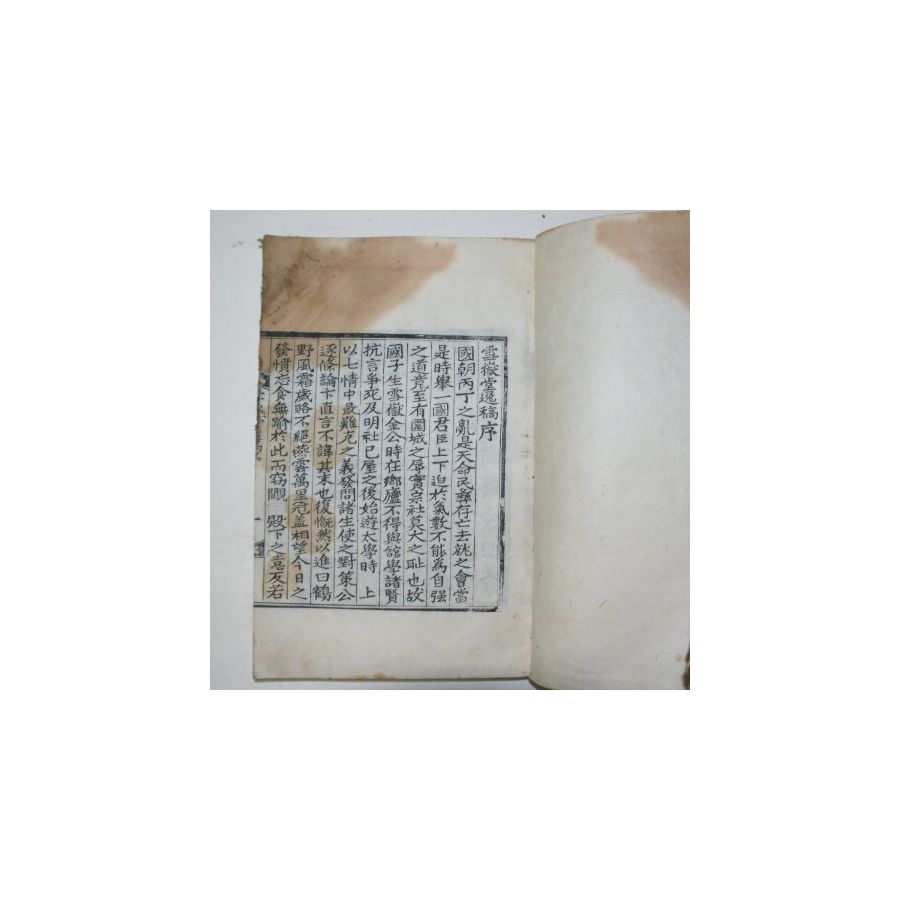 雪嶽堂逸稿序
國朝丙丁之亂是天命民彝存亡去就之會當
是時舉一國君臣上下迫於氣數不能爲自强
之道竟至有圍城之辱實宗社莫大之恥也故
國子生雪嶽金公時在鄕廬不得與館學諸賢
抗言爭死及明社已屋之後始遊太學時 上
以七情中最難克之義發問諸生使之對策公
逐條論卞直言不諱其末也復慨然以進曰鶴
野風霜歲賂不絕燕雲萬里冠盖相望今日之
發憤忘食無踰於此而窃覵 殿下之意反若